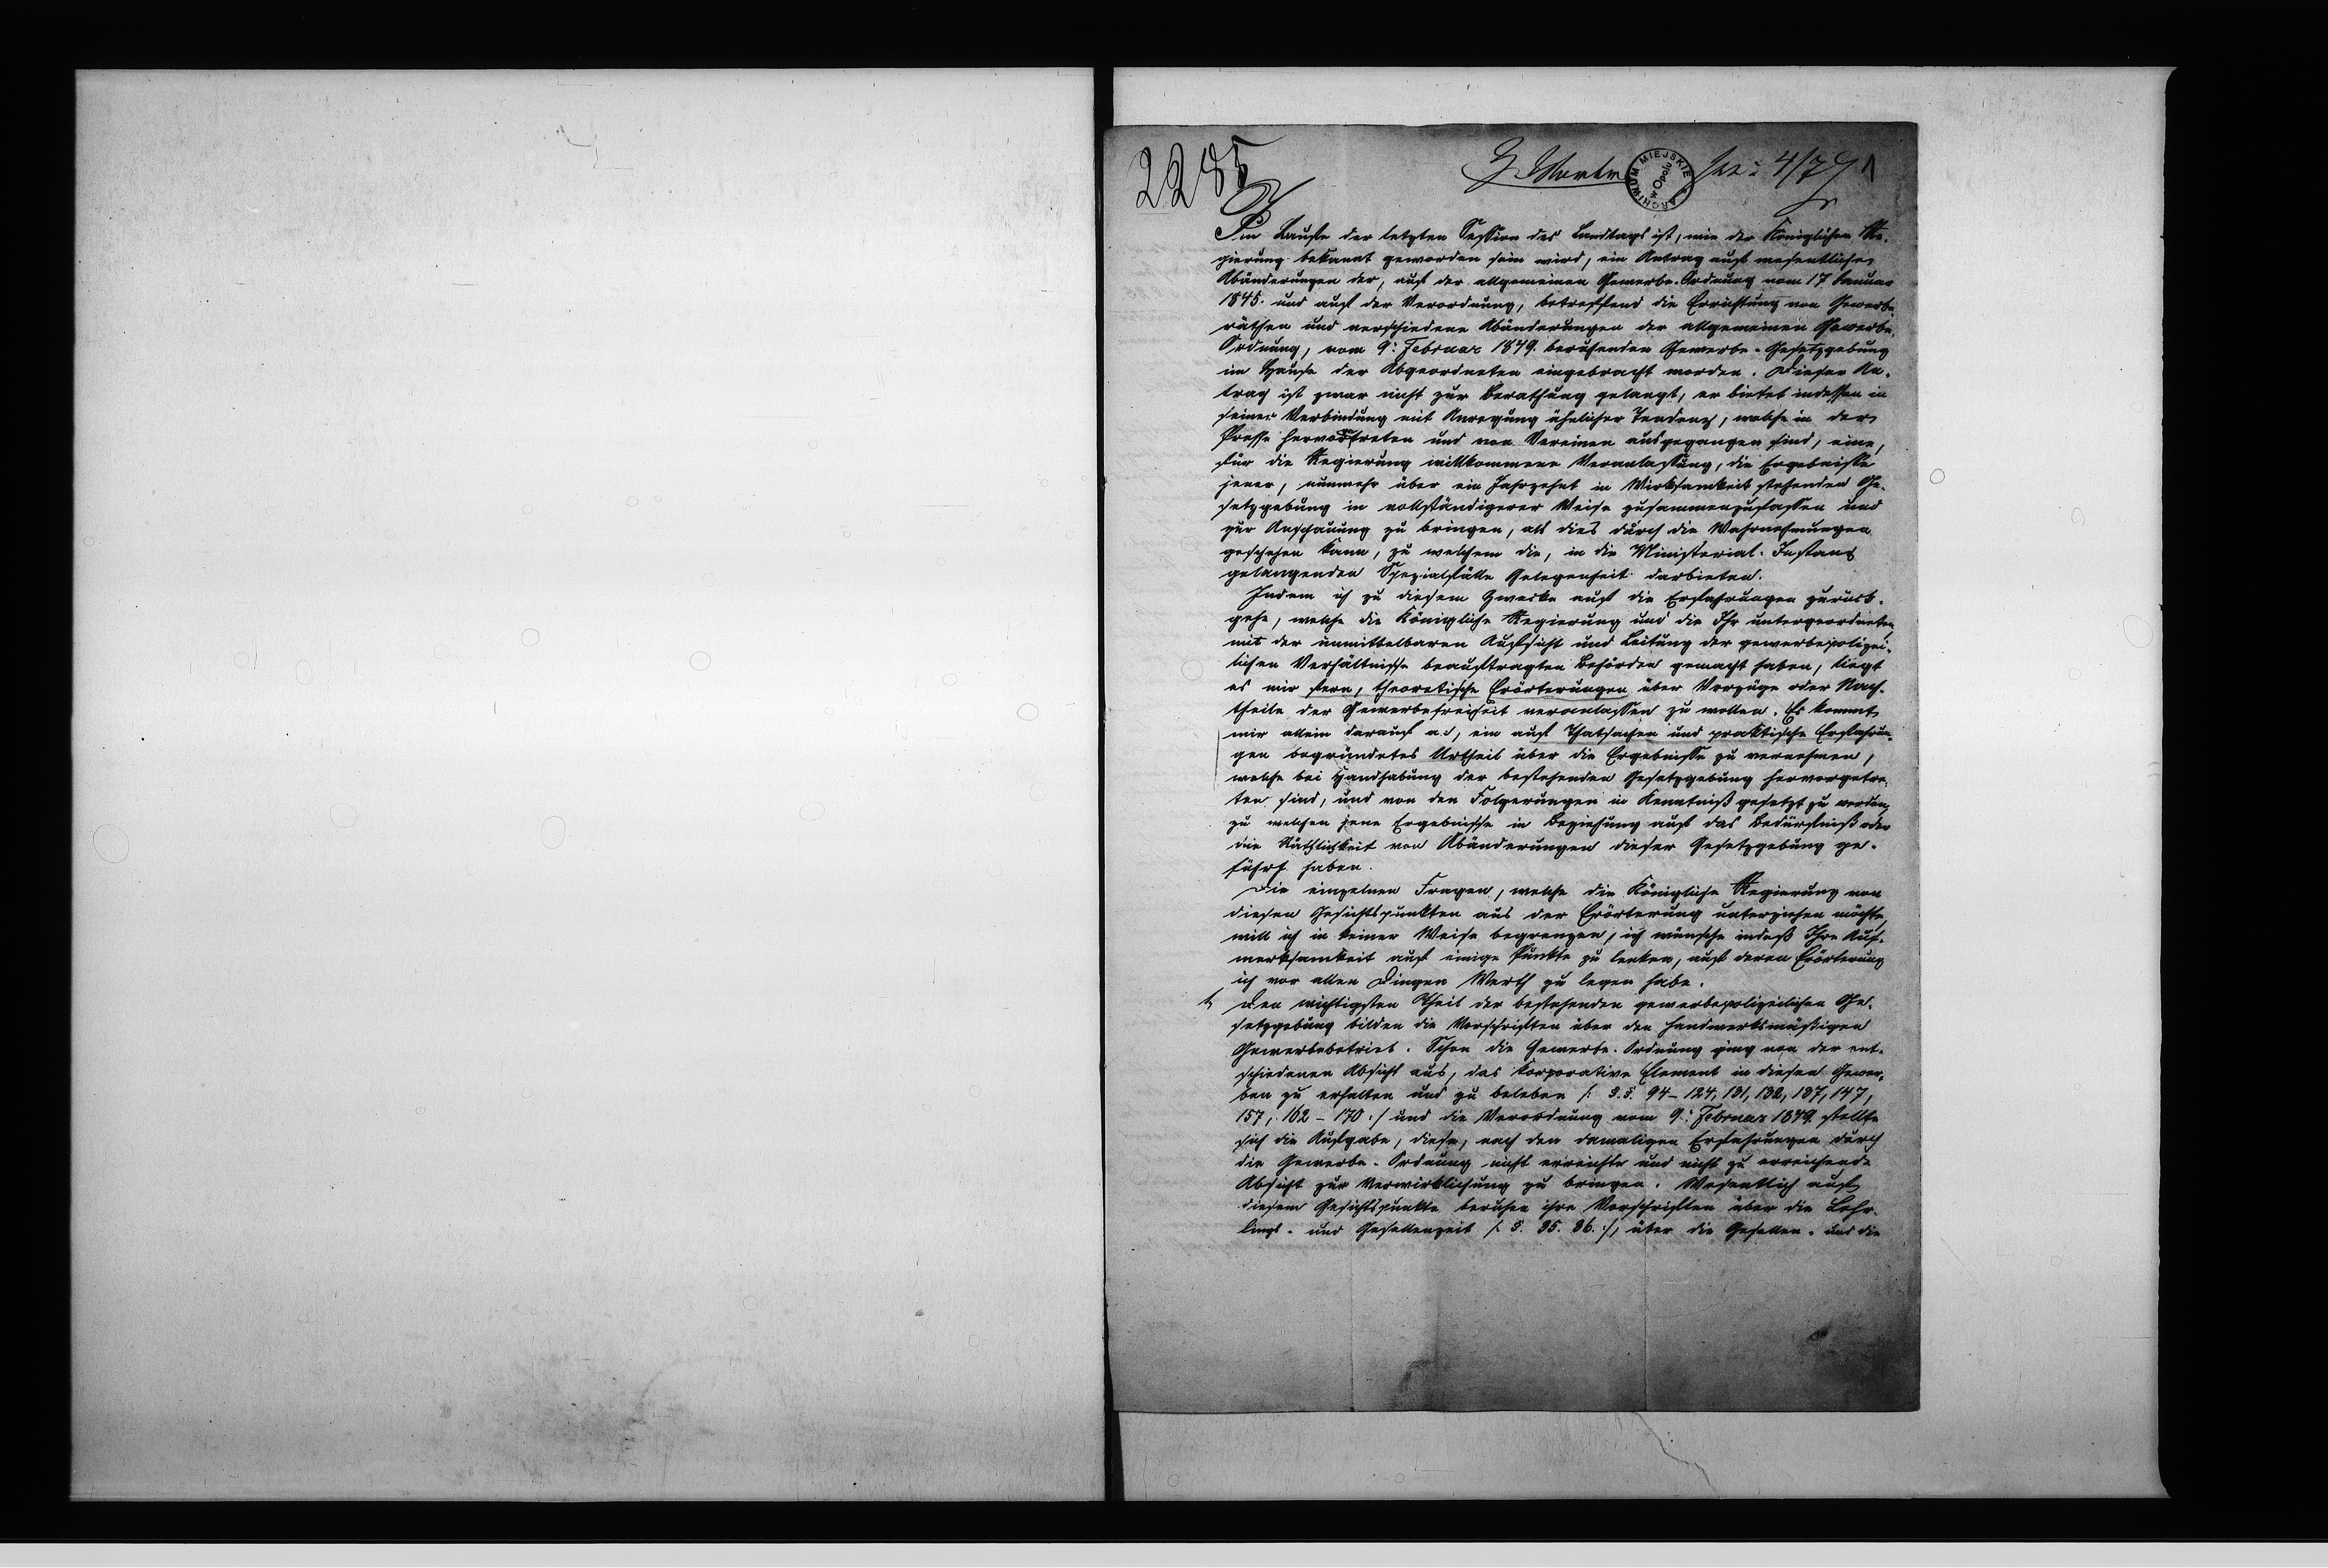 2285
ARCHIWUM MIEJSKIE
w Opolu
4/7
1
Im Laufe der letzten Session des Landtags ist, wie der Königlichen Re-
gierung bekannt geworden sein wird, ein Antrag auf wesentliche
Abänderungen der, auf der allgemeinen Gewerbe-Ordnung vom 17 Januar
1845. und auf der Verordnung, betreffend die Errichtung von Gewerbe-
räthen und verschiedene Abänderungen der allgemeinen Gewerbe-
Ordnung, vom 9: Februar 1849. beruhenden Gewerbe-Gesetzgebung
im Hause der Abgeordneten eingebracht worden. Dieser An-
trag ist zwar nicht zur Berathung gelangt, er bietet indessen in
seiner Verbindung mit Anregung ähnlicher Tendenz, welche in der
Presse hervortreten und von Vereinen ausgegangen sind, eine,
für die Regierung willkommene Veranlassung, die Ergebnisse
jener, nunmehr über ein Jahrzehnt in Wirksamkeit stehenden Ge-
setzgebung in vollständigerer Weise zusammenzufassen und
zur Anschauung zu bringen, als dies durch die Wahrnehmungen
geschehen kann, zu welchem die, in die Ministerial-Instanz
gelangenden Spezialfälle Gelegenheit darbieten.
Indem ich zu diesem Zwecke auf die Erfahrungen zurück-
gehe, welche die Königliche Regierung und die Ihr untergeordneten
mit der unmittelbaren Aufsicht und Leitung der gewerbepolizei-
lichen Verhältnisse beauftragten Behörden gemacht haben, liegt
es mir fern, theoretische Erörterungen über Vorzüge oder Nach-
theile der Gewerbefreiheit veranlassen zu wollen. Es kommt
mir allein darauf an, ein auf Thatsachen und praktische Erfahrun-
gen begründetes Urtheil über die Ergebnisse zu vernehmen,
welche bei Handhabung der bestehenden Gesetzgebung hervorgetre-
ten sind, und von den Folgerungen in Kenntniß gesetzt zu werden,
zu welchen jene Ergebnisse in Beziehung auf das Bedürfniß oder
die Räthlichkeit von Abänderungen dieser Gesetzgebung ge-
führt haben.
Die einzelnen Fragen, welche die Königliche Regierung von
diesen Gesichtspunkten aus der Erörterung unterziehen möchte,
will ich in keiner Weise begrenzen, ich wünsche indeß Ihre Auf-
merksamkeit auf einige Punkte zu lenken, auf deren Erörterung
ich vor allen Dingen Werth zu legen habe.
1, Den wichtigsten Theil der bestehenden gewerbepolizeilichen Ge-
setzgebung bilden die Vorschriften über den handwerksmäßigen
Gewerbebetrieb. Schon die Gewerbe-Ordnung ging von der ent-
schiedenen Absicht aus, das korporative Element in diesen Gewer-
ben zu erhalten und zu beleben /: §.§. 94-124, 131, 132, 137, 147,
157, 162-170 :/ und die Verordnung vom 9: Februar 1849 stellte
sich die Aufgabe, diese, nach den damaligen Erfahrungen durch
die Gewerbe-Ordnung nicht erreichte und nicht zu erreichende
Absicht zur Verwirklichung zu bringen. Wesentlich auf
diesem Gesichtspunkte beruhen ihre Vorschriften über die Lehr-
lings- und Gesellenzeit /: §. 35. 36. :/, über die Gesellen- und die